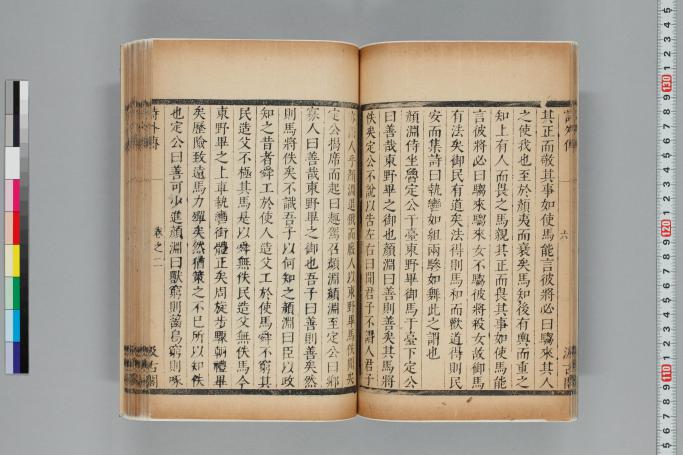 其正而敬其事如使馬能言彼將必曰騶來其人
之使我也至於顏夷而衰矣馬知後有輿而重之
知上有人而畏之馬親其正而畏其事如使馬能
言彼將必曰騶來騶來女不騶彼將殺女故御馬
有法矣御民有道矣法得則馬和而歡道得則民
安而集詩曰執轡如組兩驂如舞此之謂也
顏淵侍坐魯定公于臺東野畢御馬于臺下定公
曰善哉東野畢之御也顏淵曰善則善矣其馬將
佚矣定公不說以告左右曰聞君子不譖人君子
亦譖人乎顏淵退俄而廄人以東野畢馬佚聞矣
定公揭席而起曰趣駕召顏淵顏淵至定公曰鄉
寡人曰善哉東野畢之御也吾子曰善則善矣然
則馬將佚矣不識吾子以何知之顏淵曰臣以政
知之昔者舜工於使人造父工於使馬舜不窮其
民造父不極其馬是以舜無佚民造父無佚馬今
東野畢之上車執轡銜體正矣周旋步驟朝禮畢
矣歷險致遠馬力殫矣然猶策之不已所以知佚
也定公曰善可少進顏淵曰獸窮則齧鳥窮則啄
詩外傳
卷之二
汲古閣
六